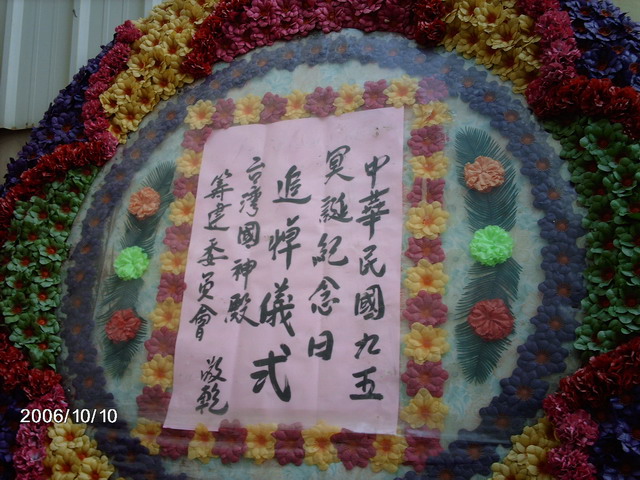 中華民國九五
冥誕紀念日
追悼儀式
台灣國神殿
籌建委員會 敬輓
2006/10/10